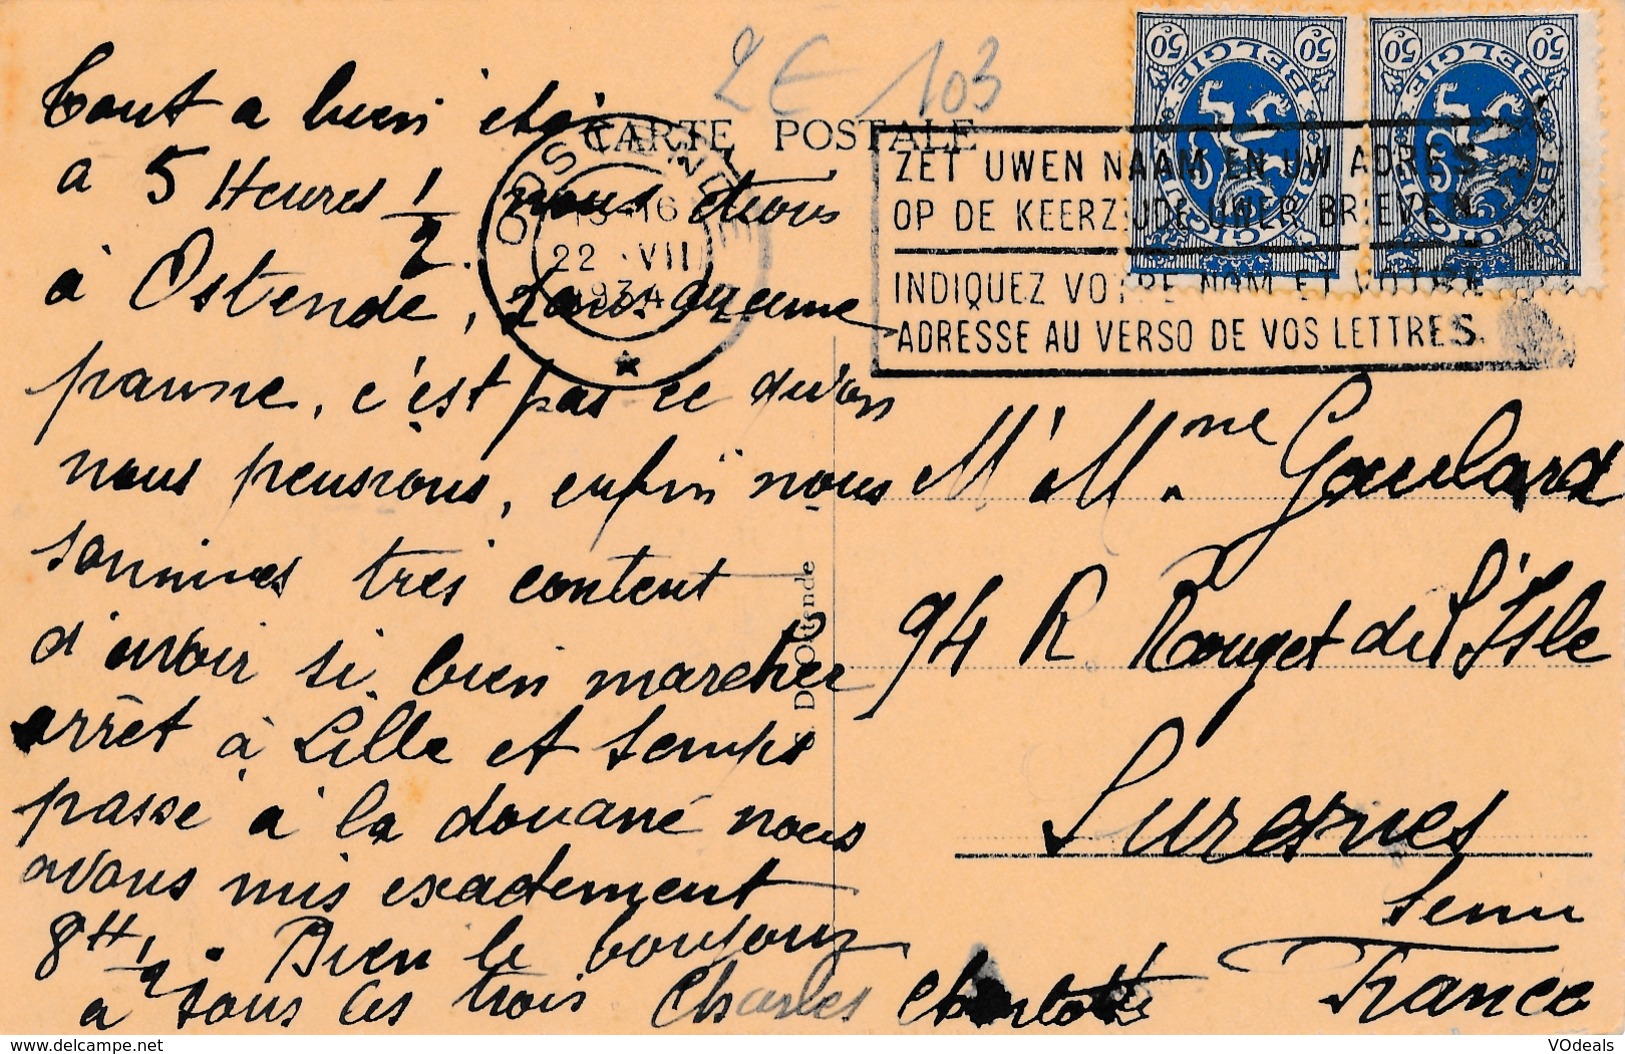 Tout a bien été
a 5 Heures 1/2 nous étions
à Ostende, sans aucune
panne, c'est pas ce qu'on
nous pensions, enfin nous
sommes très content
d'avoir si bien marcher
arrêt à Lille et temps
passé à la douane nous
avons mis exactement
8H 1/2. Bien le bonjour
a tous les trois Charles Charlotte
2€ 103
CARTE POSTALE
OOSTENDE
15-16
22 VII
1934
OOSTENDE
ZET UWEN NAAM EN UW ADRES
OP DE KEERZIJDE UWER BRIEVEN
INDIQUEZ VOTRE NOM ET VOTRE
ADRESSE AU VERSO DE VOS LETTRES.
50c BELGIE 50c
BELGIQUE
50c BELGIE 50c
BELGIQUE
D. Ostende
Mr Mme Goulard
94 R Rouget de L'Isle
Suresnes
Seine
France
www.delcampe.net
VOdeals